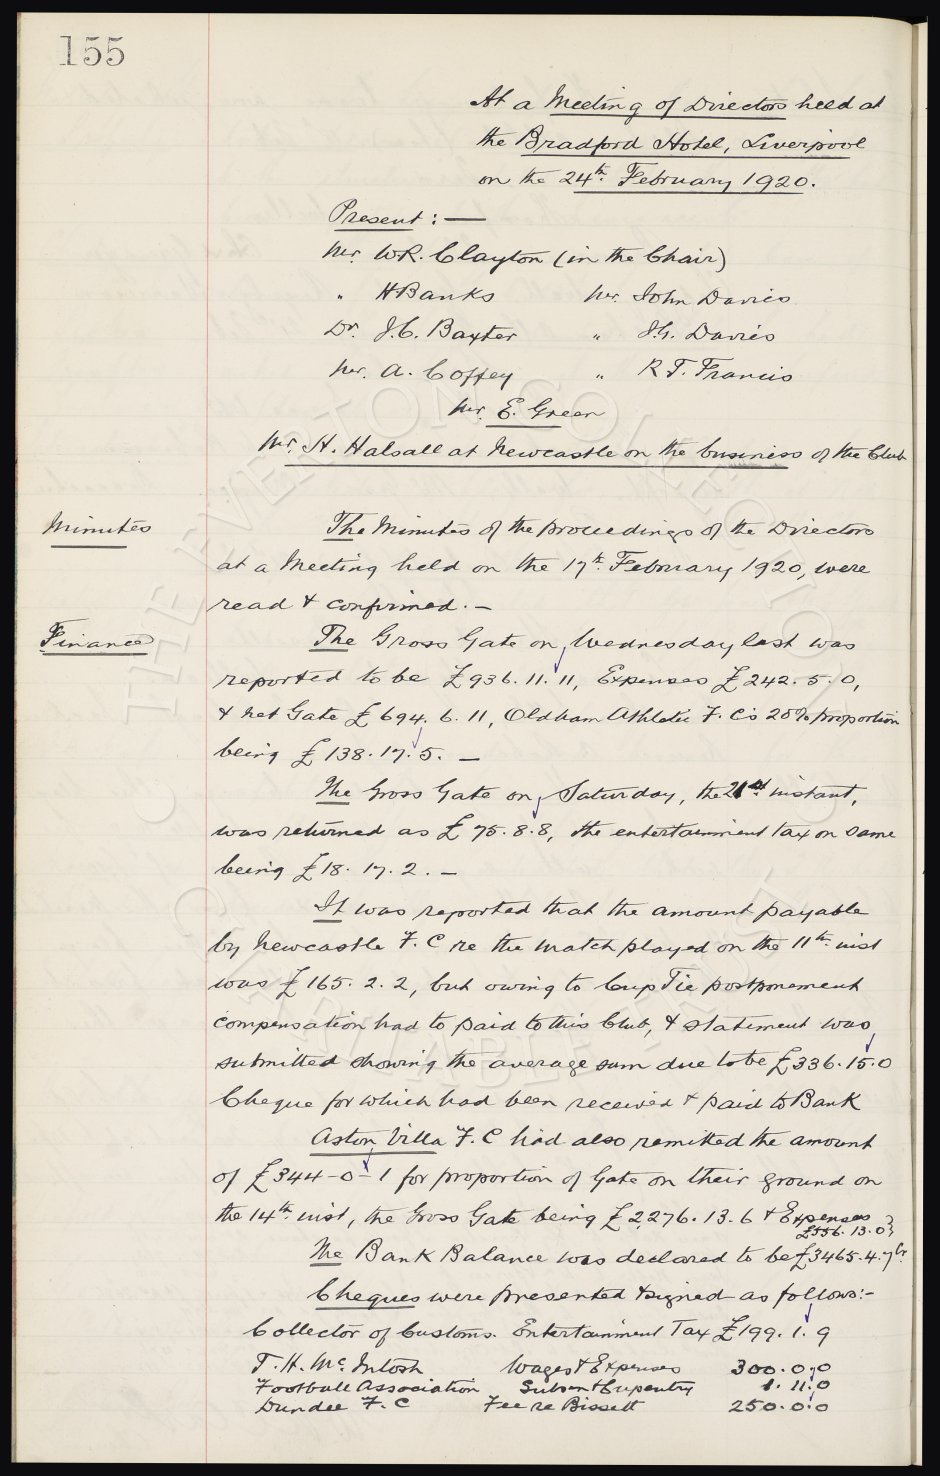 155
At a Meeting of Directors held at
the Bradford Hotel, Liverpool
on the 24th. February 1920.
Present: —
Mr. W.R. Clayton (in the Chair)
" H Banks Mr. John Davies
Dr. J.C. Baxter " J.G. Davies
Mr. A. Coffey " R T. Francis
Mr. E. Green
Mr. H. Halsall at Newcastle on the business of the Club
Minutes The Minutes of the proceedings of the Directors
at a Meeting held on the 17th. February 1920, were
read & confirmed. —
Finance The Gross Gate on Wednesday last was
reported to be £936. 11. 11, Expenses £242. 5. 0,
& net Gate £694. 6. 11, Oldham Athletic F. C's 20% proportion
being £138. 17. 5. —
The Gross Gate on Saturday, the 21st. instant,
was returned as £75. 8. 8, the entertainment tax on same
being £18. 17. 2. —
It was reported that the amount payable
by Newcastle F. C re the match played on the 11th. inst
was £165. 2. 2, but owing to Cup Tie postponement
compensation had to paid to this Club, & statement was
submitted showing the average sum due to be £336. 15. 0
Cheque for which had been received & paid to Bank
Aston Villa F. C had also remitted the amount
of £344 – 0 – 1 for proportion of Gate on their ground on
the 14th. inst, the Gross Gate being £2,276. 13. 6 & Expenses
£556. 13. 0
The Bank Balance was declared to be £3465. 4. 7 Cr.
Cheques were presented & signed as follows:–
Collector of Customs. Entertainment Tax £199. 1. 9
T. H. Mc. Intosh Wages & Expenses 300. 0. 0
Football Association Subsn & Cup entry 1. 11. 0
Dundee F. C Fee re Bissett 250. 0. 0
THE EVERTON COLLECTION
CHARITABLE TRUST